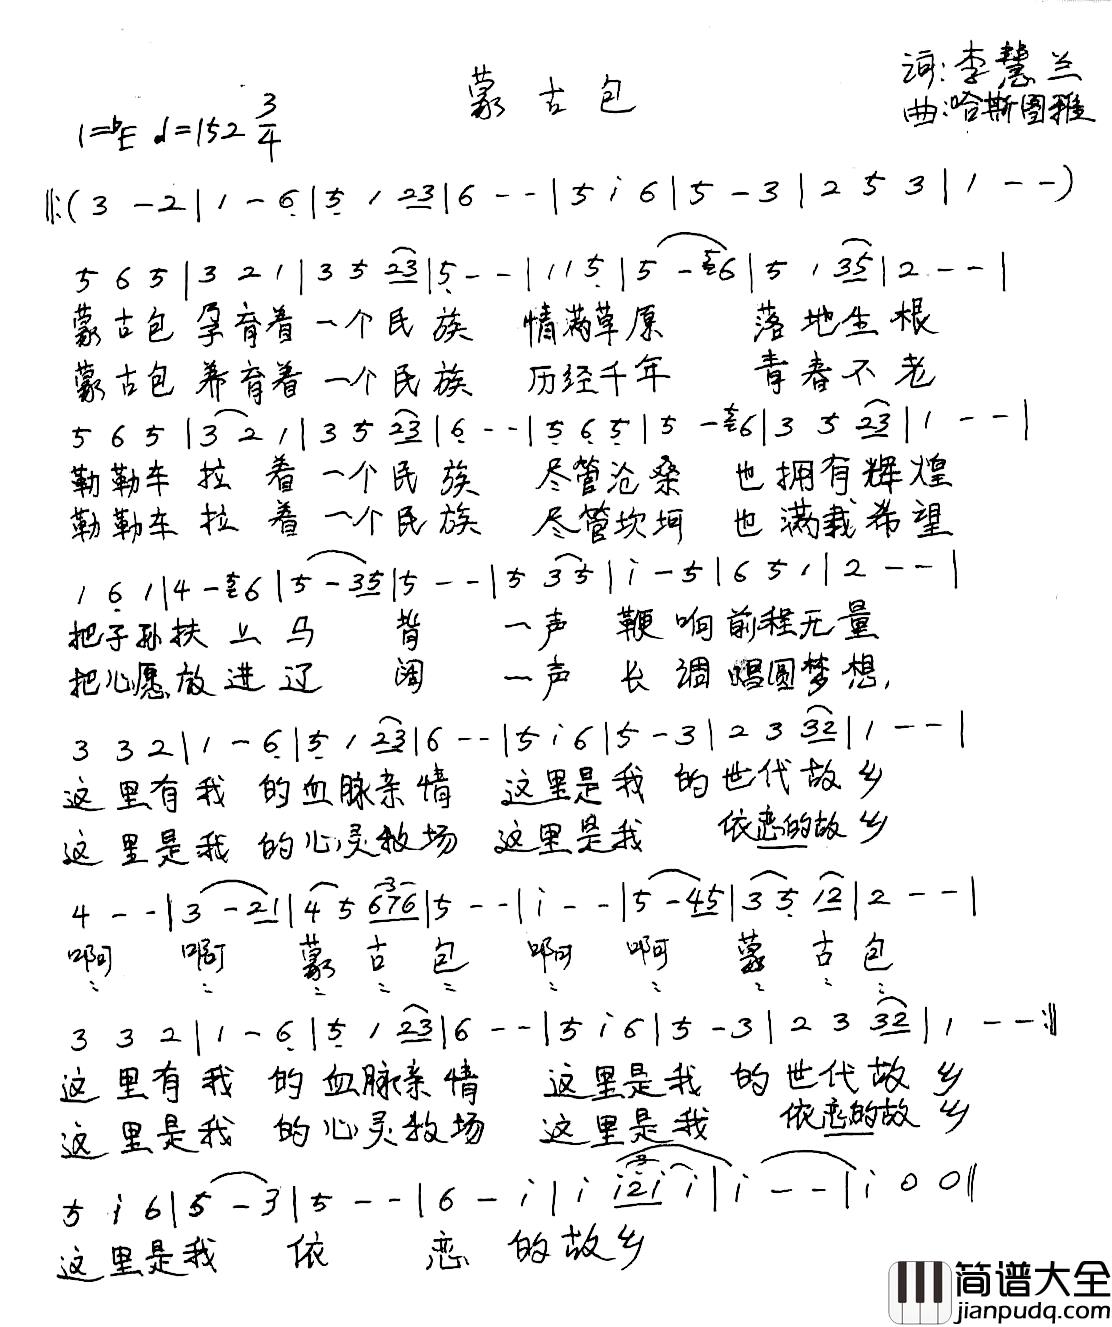 蒙古包
词:李慧兰
曲:哈斯图雅
1=♭E ♩=152 3/4
‖:(3 - 2|1 - 6|5 1 23|6 - -|5 i 6|5 - 3|2 5 3|1 - -)
5 6 5|3 2 1|3 5 23|5 - -|1 1 5|5 - 56|5 1 35|2 - -|
蒙古包 孕育着 一个民族 情满草原 落地生根
蒙古包 养育着 一个民族 历经千年 青春不老
5 6 5|3 2 1|3 5 23|6 - -|5 6 5|5 - 56|3 5 23|1 - -|
勒勒车 拉着 一个民族 尽管沧桑 也拥有辉煌
勒勒车 拉着 一个民族 尽管坎坷 也满载希望
1 6 1|4 - 56|5 - 35|5 - -|5 3 5|i - 5|6 5 1|2 - -|
把子孙扶上马背 一声鞭响前程无量
把心愿放进辽阔 一声长调唱圆梦想,
3 3 2|1 - 6|5 1 23|6 - -|5 i 6|5 - 3|2 3 32|1 - -|
这里有我的血脉亲情 这里是我的世代故乡
这里是我的心灵牧场 这里是我 依恋的故乡
4 - -|3 - 21|4 5 676|5 - -|i - -|5 - 45|3 5 12|2 - -|
啊 啊 蒙古包 啊 啊 蒙古包
3 3 2|1 - 6|5 1 23|6 - -|5 i 6|5 - 3|2 3 32|1 - -:‖
这里有我的血脉亲情 这里是我的世代故乡
这里是我的心灵牧场 这里是我 依恋的故乡
5 i 6|5 - 3|5 - -|6 - i|i i2i i|i - -|i 0 0‖
这里是我 依恋的故乡
简谱大全
jianpudq.com